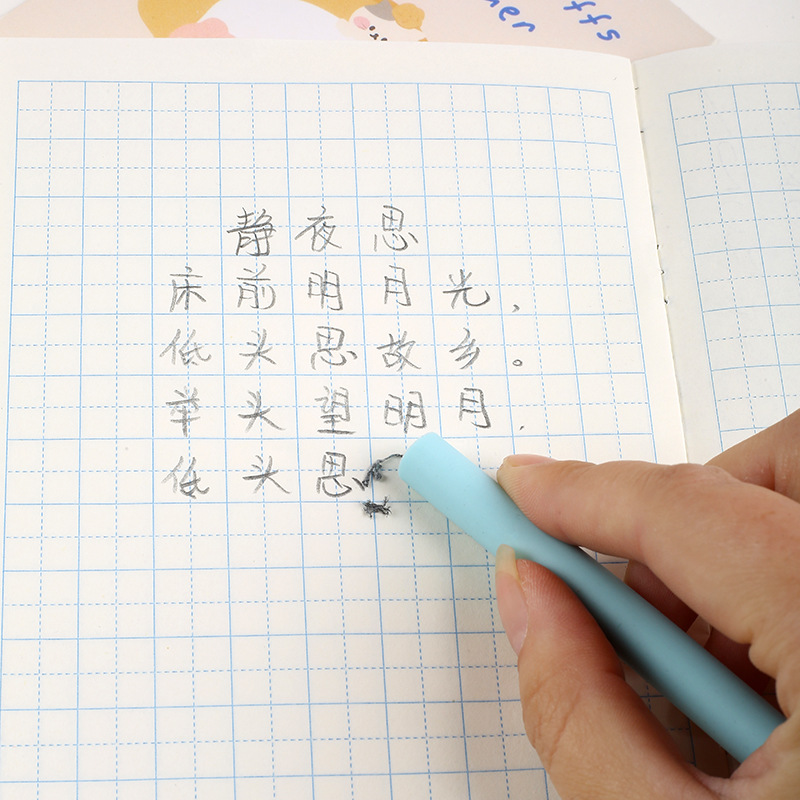 ffs
ner
静夜思
床前明月光，
低头思故乡。
举头望明月.
低头思